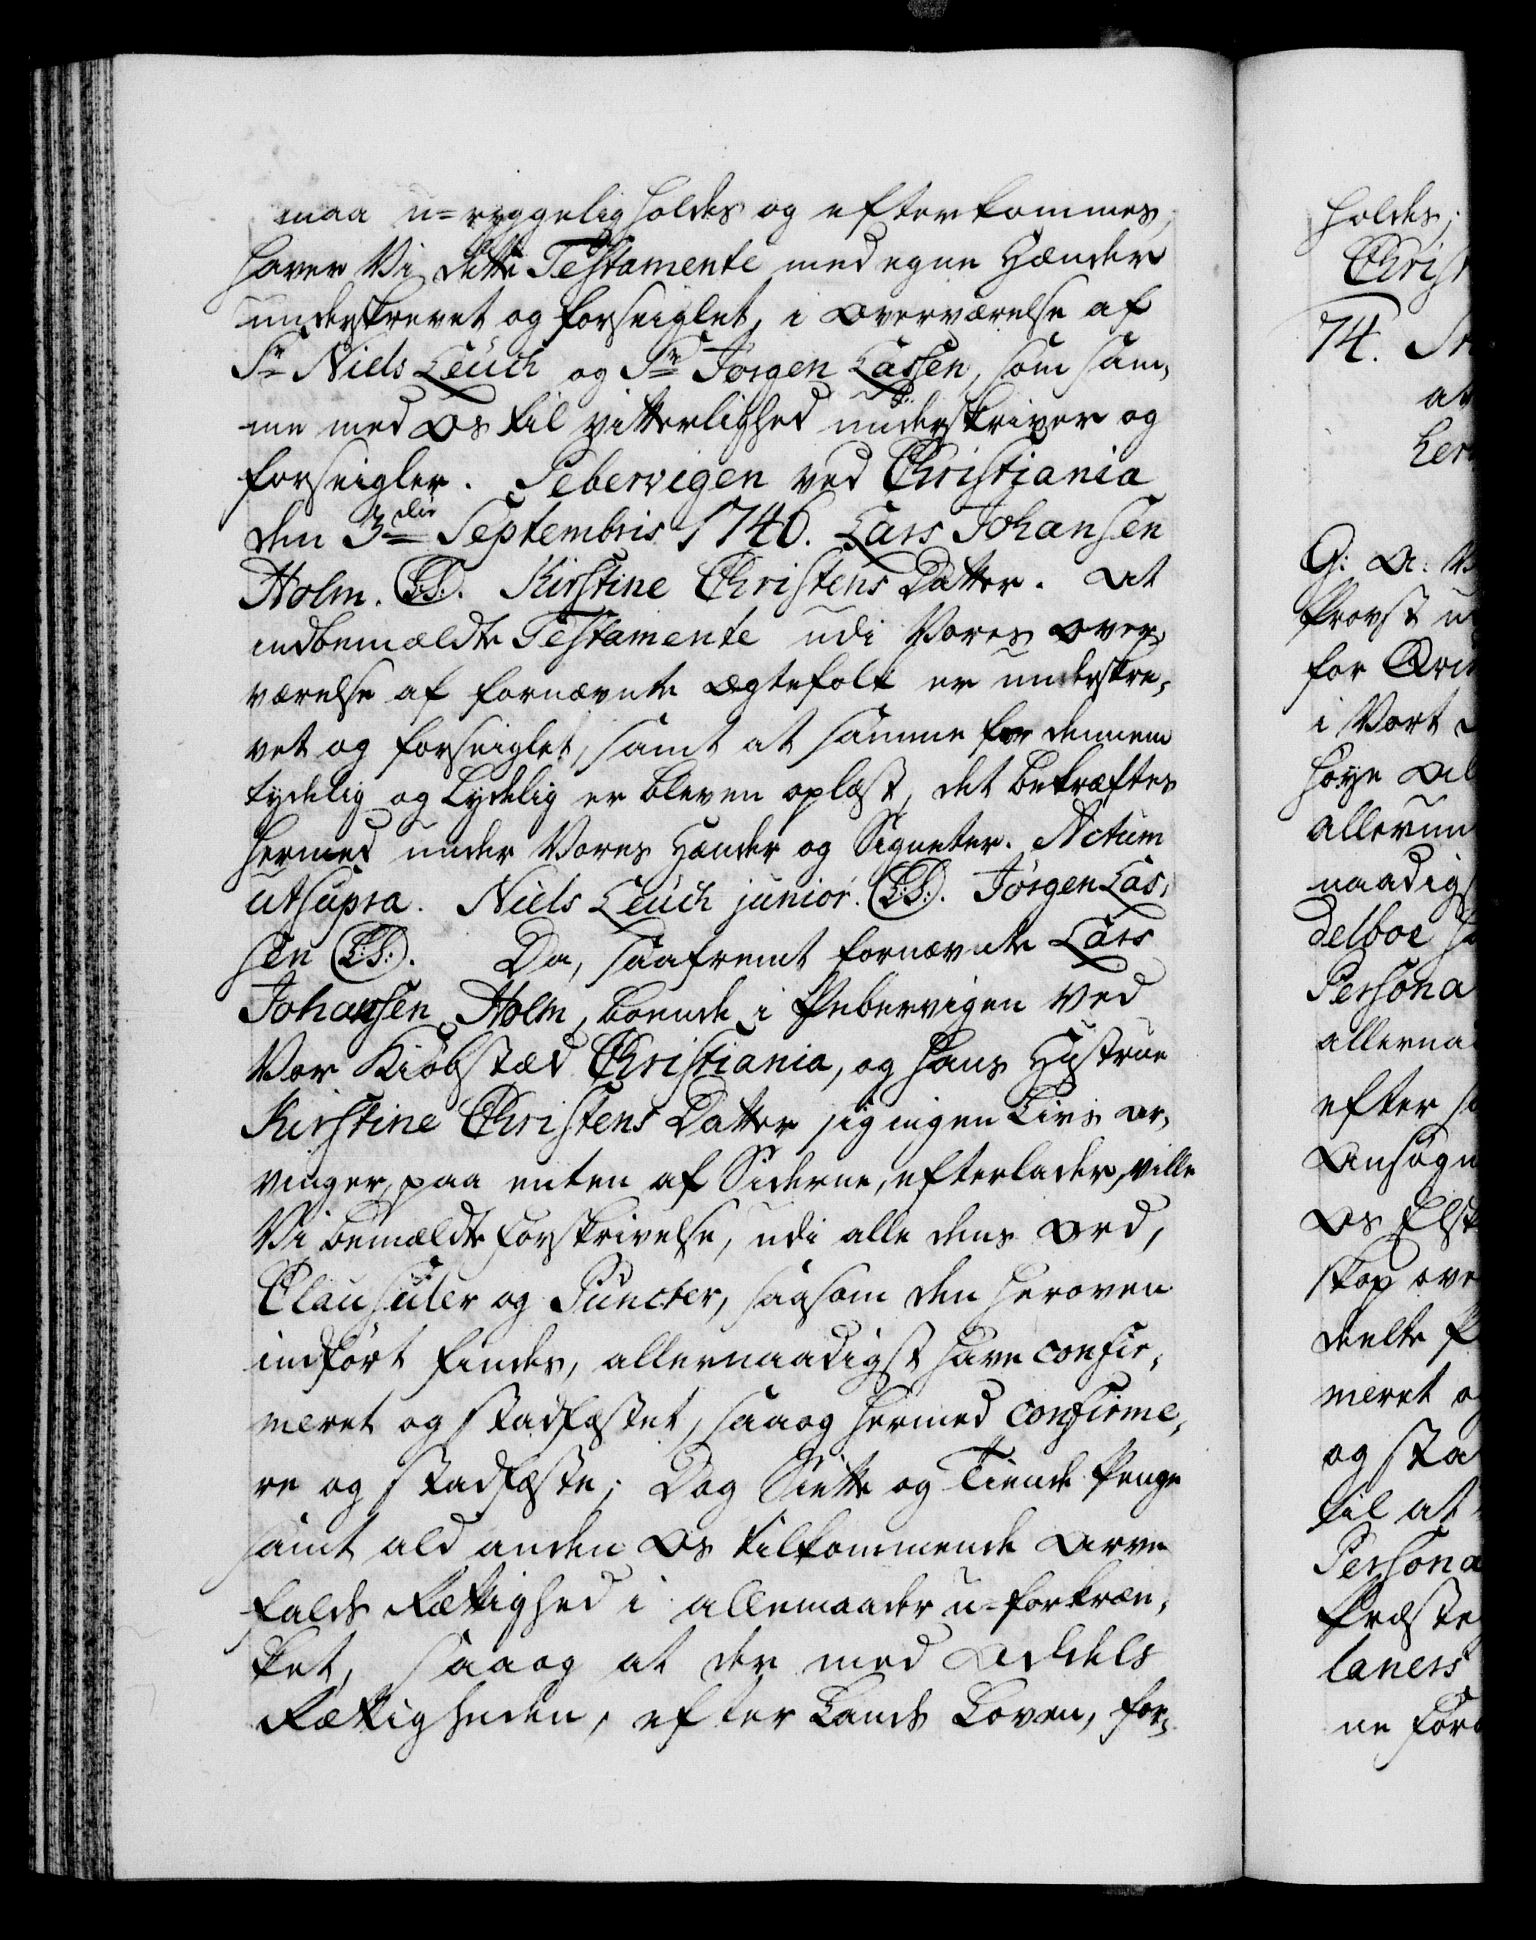 maa u-ryggelig holdes og efterkommes,
haver Vi dette Testamente med egne Hænder
underskrevet og forseiglet, i Overværelse af
Sr Niels Leuch og Sr Jørgen Lassen, som sam-
me med Os til vitterlighed underskriver og
forseigler. Pebervigen ved Christiania
den 3die Septembris 1746. Lars Johansen
Holm. (L.S.). Kirstine Christens Datter. At
indbemældte Testamente udi Vores Over-
værelse af fornævnte Ægtefolk er underskre-
vet og forseiglet, samt at samme for dennem
tydelig og lydelig er bleven oplæst, det bekræftes
hermed under Vores Hænder og Signeter. Actum
utsupra. Niels Leuch junior. (L.S.). Jørgen Las-
sen (L.S.). Da, saafremt fornævnte Lars
Johansen Holm, boende i Pebervigen ved
Vor Kiøbstæd Christiania, og hans Hustrue
Kirstine Christens Datter sig ingen Livs Ar-
vinger, paa enten af Siderne, efterlader, ville
Vi bemældte Forskrivelse, udi alle dens Ord,
Clausuler og Puncter, saasom den heroven
indført findes, allernaadigst have confir-
meret og stadfæstet, saa og hermed confirme-
re og stadfæste; Dog Siette og Tiende Penge
samt ald anden Os tilkommende Arve
falds Rettighed i allemaader u-forkræn-
ket, saa og at der med Adels
Rettigheden, efter Lands Loven, for-
holdes;
Christ
74.
at
her
G: A: V
Provst u
for
i Vort
høye
allerun
naadigs
delboe ha
Persona
allernaa
efter
Ansøgn
Os Elsk
skop ove
deelte
meret og
og sta
til at
Persona
Præste
laners
ne for